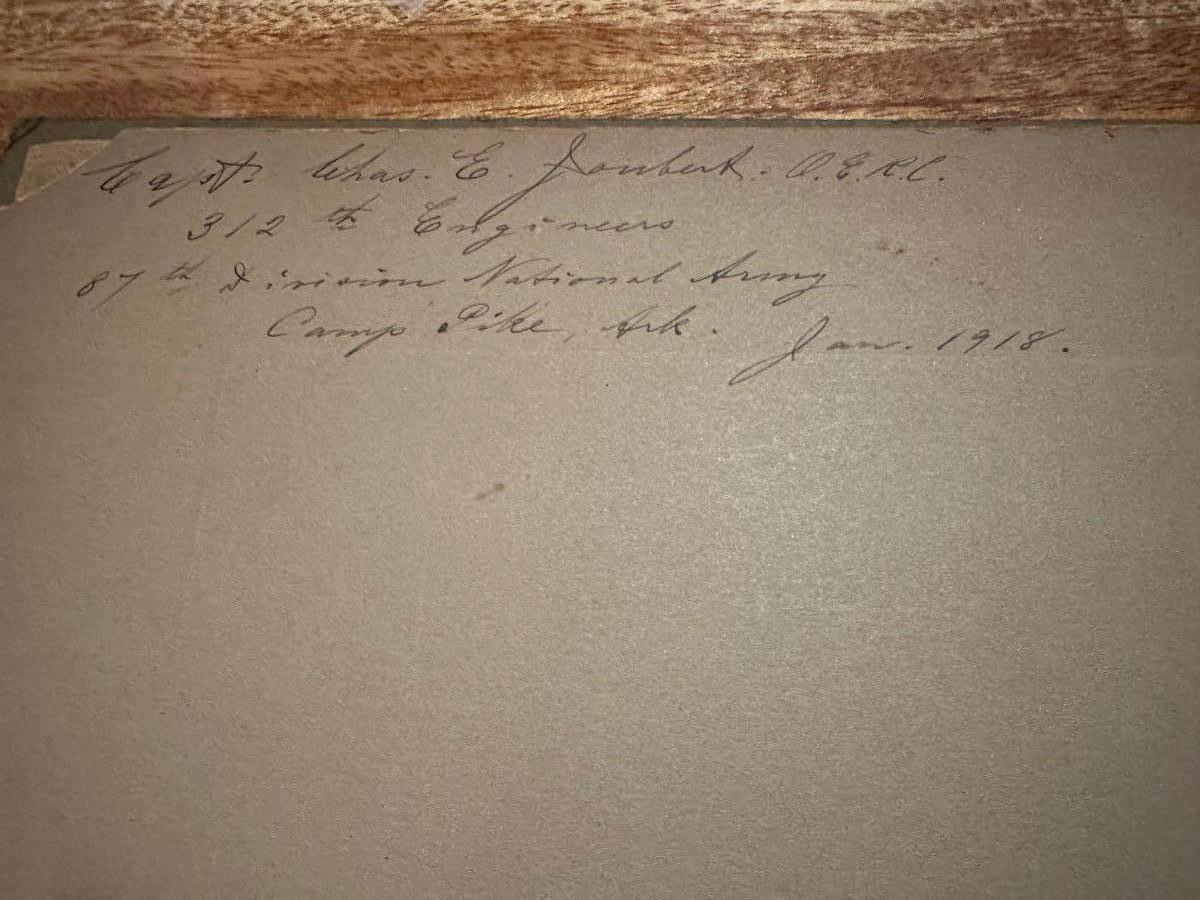 Capt. Chas. E. Joubert. O.E.R.C.
312th Engineers
87th Division National Army
Camp Pike, Ark.
Jan. 1918.